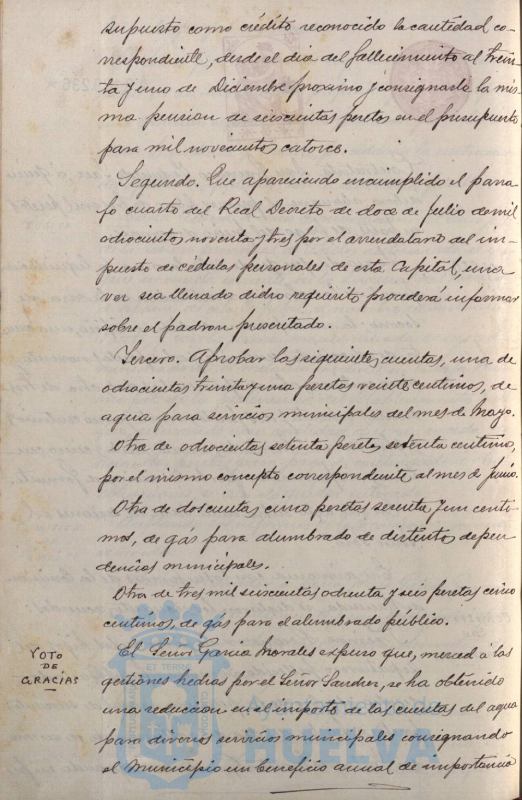 supuesto como crédito reconocido la cantidad co-
rrespondiente, desde el dia del fallecimiento al trein-
ta y uno de Diciembre proximo y consignada la mis-
ma pension de seiscientas pesetas en el presupuesto
para mil novecientos catorce.
Segundo. Que apareciendo incumplido el parra-
fo cuarto del Real Decreto de doce de Julio de mil
ochocientos noventa y tres por el arrendatario del im-
puesto de cédulas personales de esta Capital, una
vez sea llenado dicho requisito procederá informar
sobre el padron presentado.
Tercero. Aprobar las siguientes cuentas, una de
ochocientas treinta y una pesetas veinte centimos, de
agua para servicios municipales del mes de Mayo.
Otra de ochocientas setenta pesetas setenta centimos,
por el mismo concepto correspondiente al mes de Junio.
Otra de doscientas cinco pesetas sesenta y un centi-
mos, de gás para alumbrado de distintas depen-
dencias municipales.
Otra de tres mil seiscientas ochenta y seis pesetas cinco
centimos, de gás para el alumbrado público.
VOTO
DE
GRACIAS
El Señor Garcia Morales expuso que, merced á las
gestiones hechas por el Señor Sanchez, se ha obtenido
una reduccion en el importe de las cuentas del agua
para diversos servicios municipales consignando
el Municipio un beneficio anual de importancia
ET TERRÆ
Ayuntamiento de
HUELVA